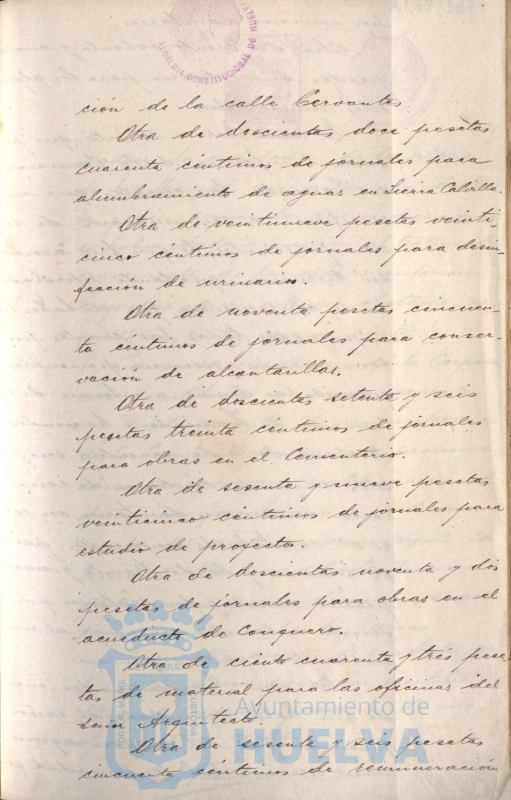 ALCALDÍA CONSTITUCIONAL DE HUELVA
ción de la calle Cervantes.
Otra de doscientas doce pesetas
cuarenta céntimos de jornales para
alumbramiento de aguas en Sierra Calvilla.
Otra de veintinueve pesetas veinti-
cinco céntimos de jornales para desin-
fección de urinarios.
Otra de noventa pesetas cincuen-
ta céntimos de jornales para conser-
vación de alcantarillas.
Otra de doscientas setenta y seis
pesetas treinta céntimos de jornales
para obras en el Cementerio.
Otra de sesenta y nueve pesetas
veinticinco céntimos de jornales para
estudio de proyectos.
Otra de doscientas noventa y dos
pesetas de jornales para obras en el
acueducto de Conquero.
Otra de ciento cuarenta y tres pese-
tas de material para las oficinas del
señor Arquitecto.
Otra de sesenta y seis pesetas
cincuenta céntimos de remuneración
Ayuntamiento de
HUELVA